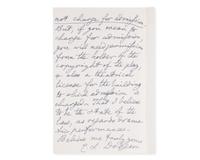 not charge for admission
But, if you mean to
charge for admission
you will need permission
from the holder of the
copyright of the play
& also a theatrical
license for the building
to which admission is
charged. That I believe
to be the state of the
law, as regards dramatic
performances.
Believe me truly yours
C. L. Dodgson